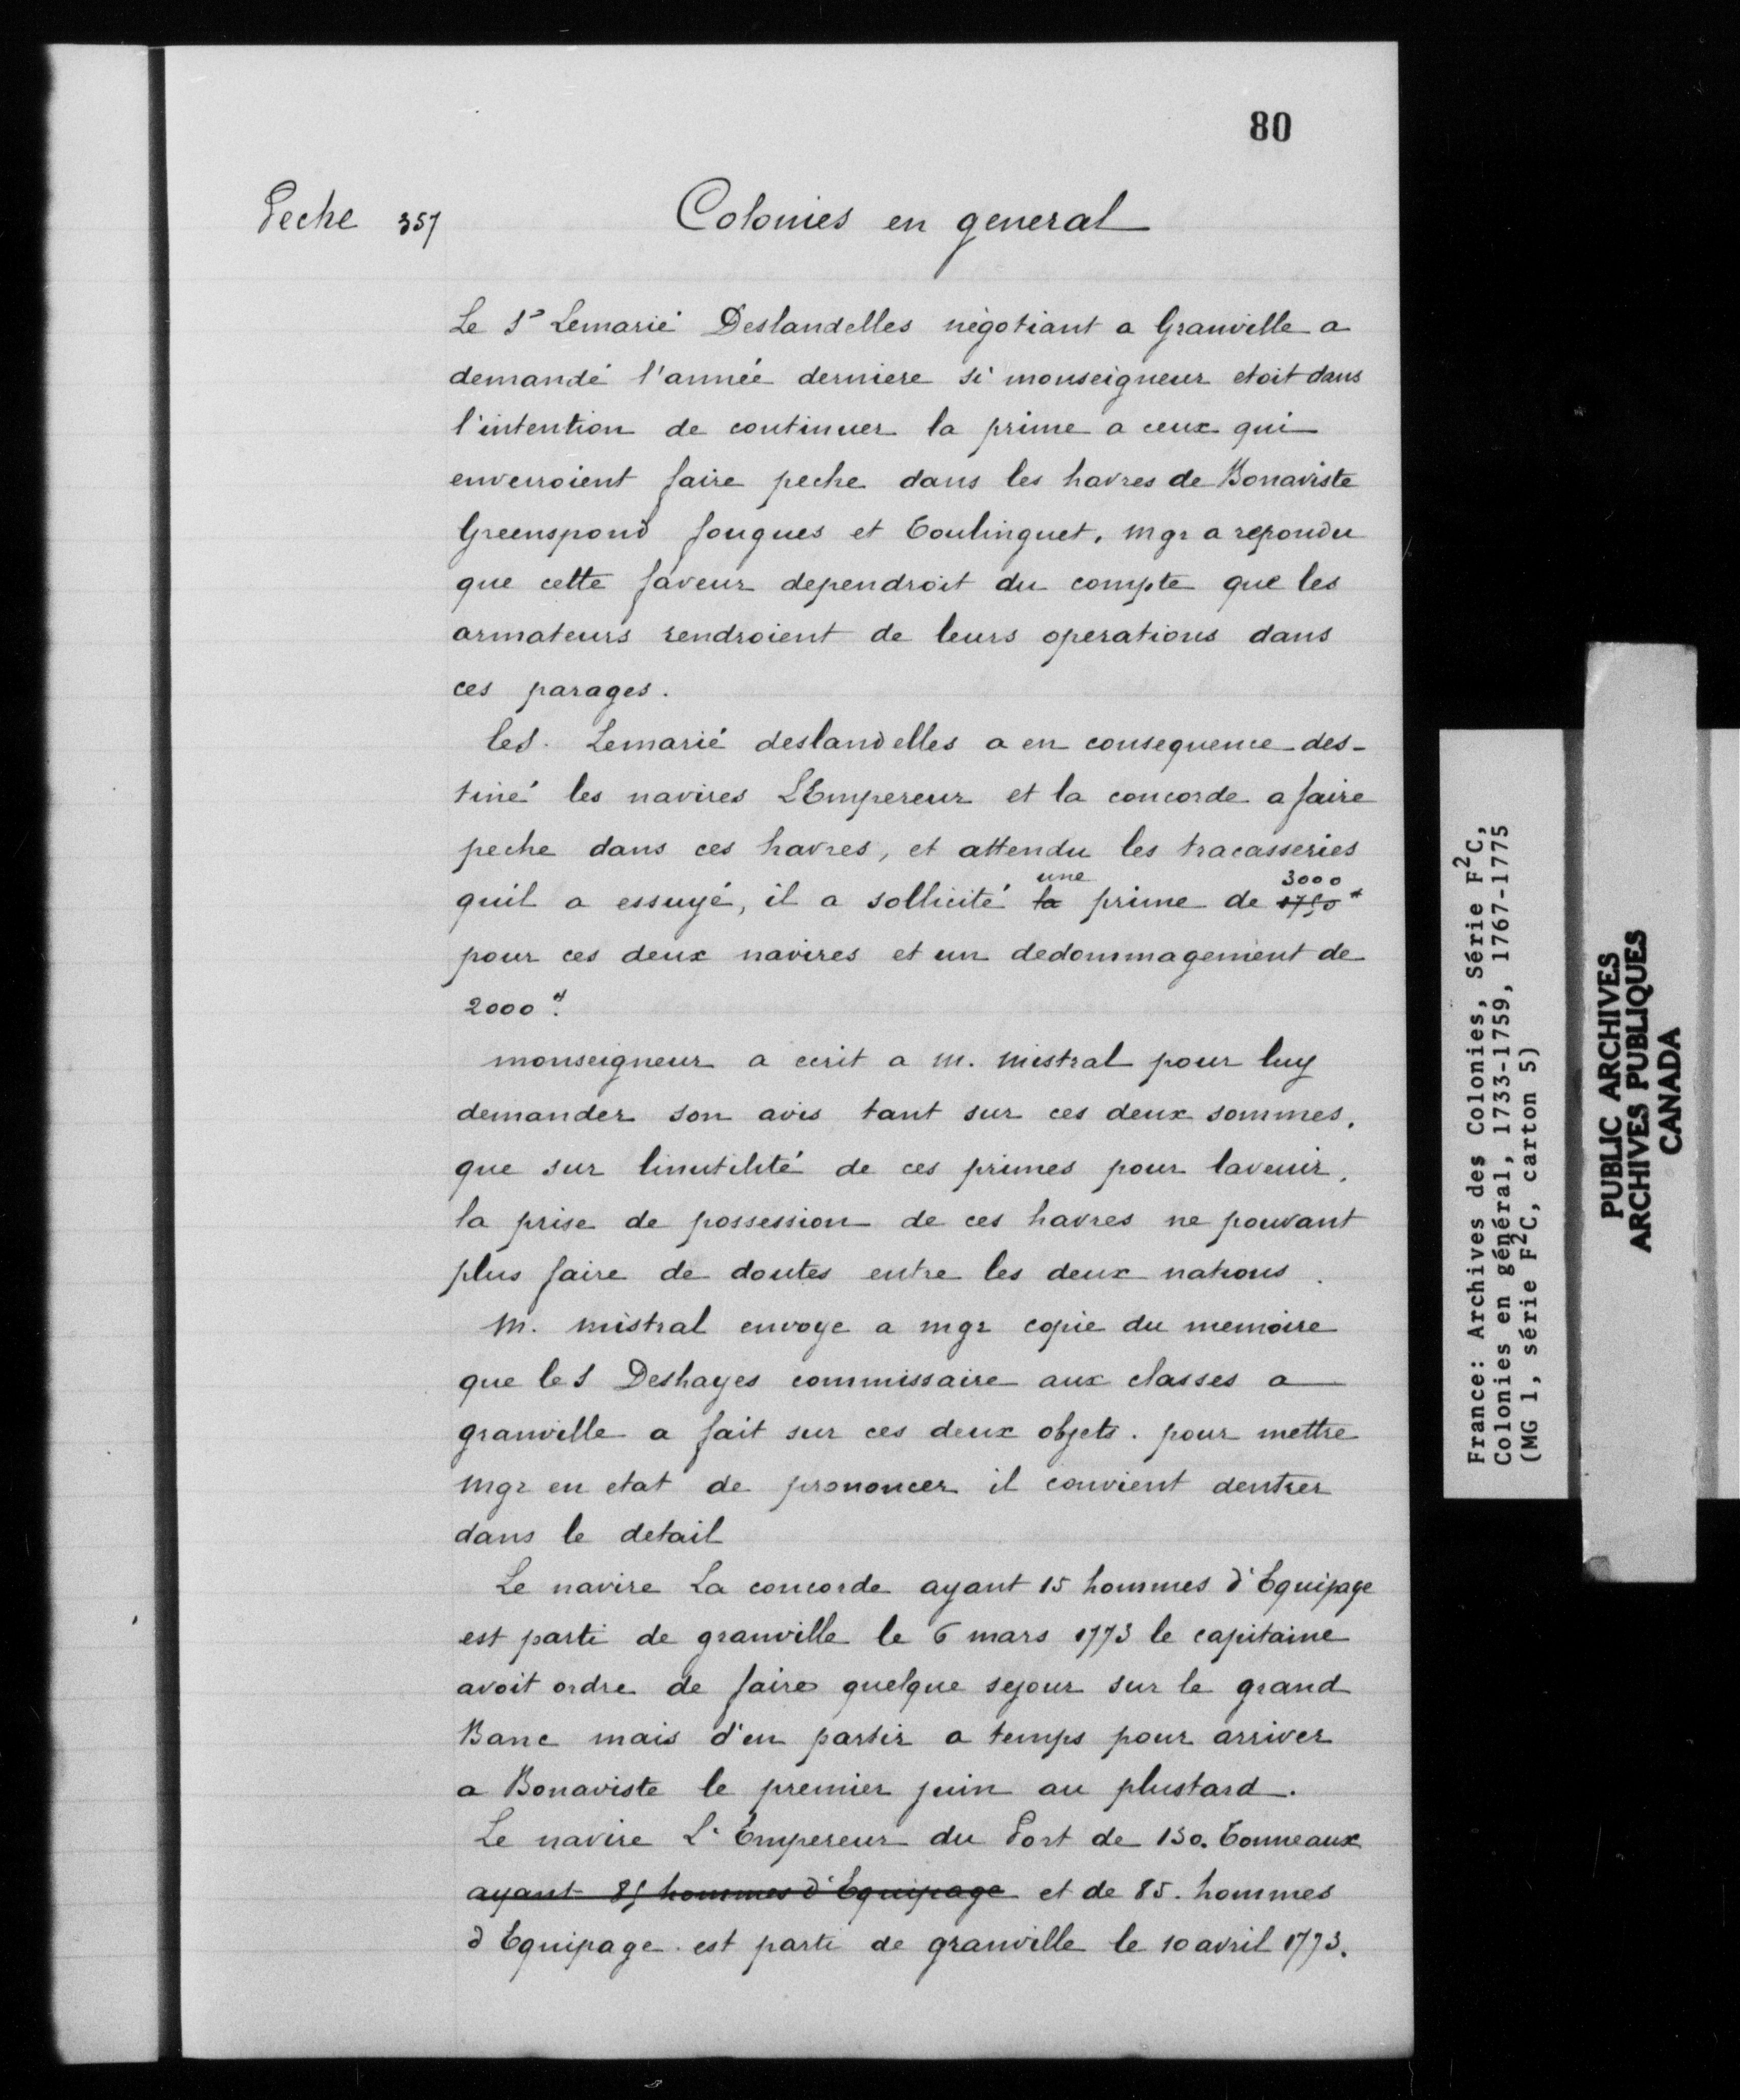 80
Peche 357
Colonies en general
Le Sr Lemarié Deslandelles négotiant a Granville a
demandé l'année derniere si monseigneur etoit dans
l'intention de continuer la prime a ceux qui
enverroient faire peche dans les havres de Bonaviste
Greenspond fougues et Toulinguet. Mgr a repondu
que cette faveur dependroit du compte que les
armateurs rendroient de leurs operations dans
ces parages.
les. Lemarié deslandelles a en consequence des-
tiné les navires L'Empereur et la concorde a faire
peche dans ces havres, et attendu les tracasseries
une 3000
quil a essuyé, il a sollicité la prime de 1750#
pour ces deux navires et un dedommagement de
2000#.
monseigneur a ecrit a m. mistral pour luy
demander son avis tant sur ces deux sommes,
que sur linutilité de ces primes pour lavenir,
la prise de possession de ces havres ne pouvant
plus faire de doutes entre les deux nations.
M. mistral envoye a mgr copie du memoire
que le S Deshayes commissaire aux classes a
granville a fait sur ces deux objets. pour mettre
Mgr en etat de prononcer il convient dentrer
dans le detail
Le navire La concorde ayant 15 hommes d'Equipage
est parti de granville le 6 mars 1773 le capitaine
avoit ordre de faire quelque sejour sur le grand
Banc mais d'en partir a temps pour arriver
a Bonaviste le premier juin au plustard.
Le navire L'Empereur du Port de 130. Tonneaux
ayant 85 hommes d'Equipage et de 85. hommes
d Equipage est parti de granville le 10 avril 1773.
France: Archives des Colonies, Série F2C,
Colonies en général, 1733-1759, 1767-1775
(MG 1, série F2C, carton 5)
PUBLIC ARCHIVES
ARCHIVES PUBLIQUES
CANADA